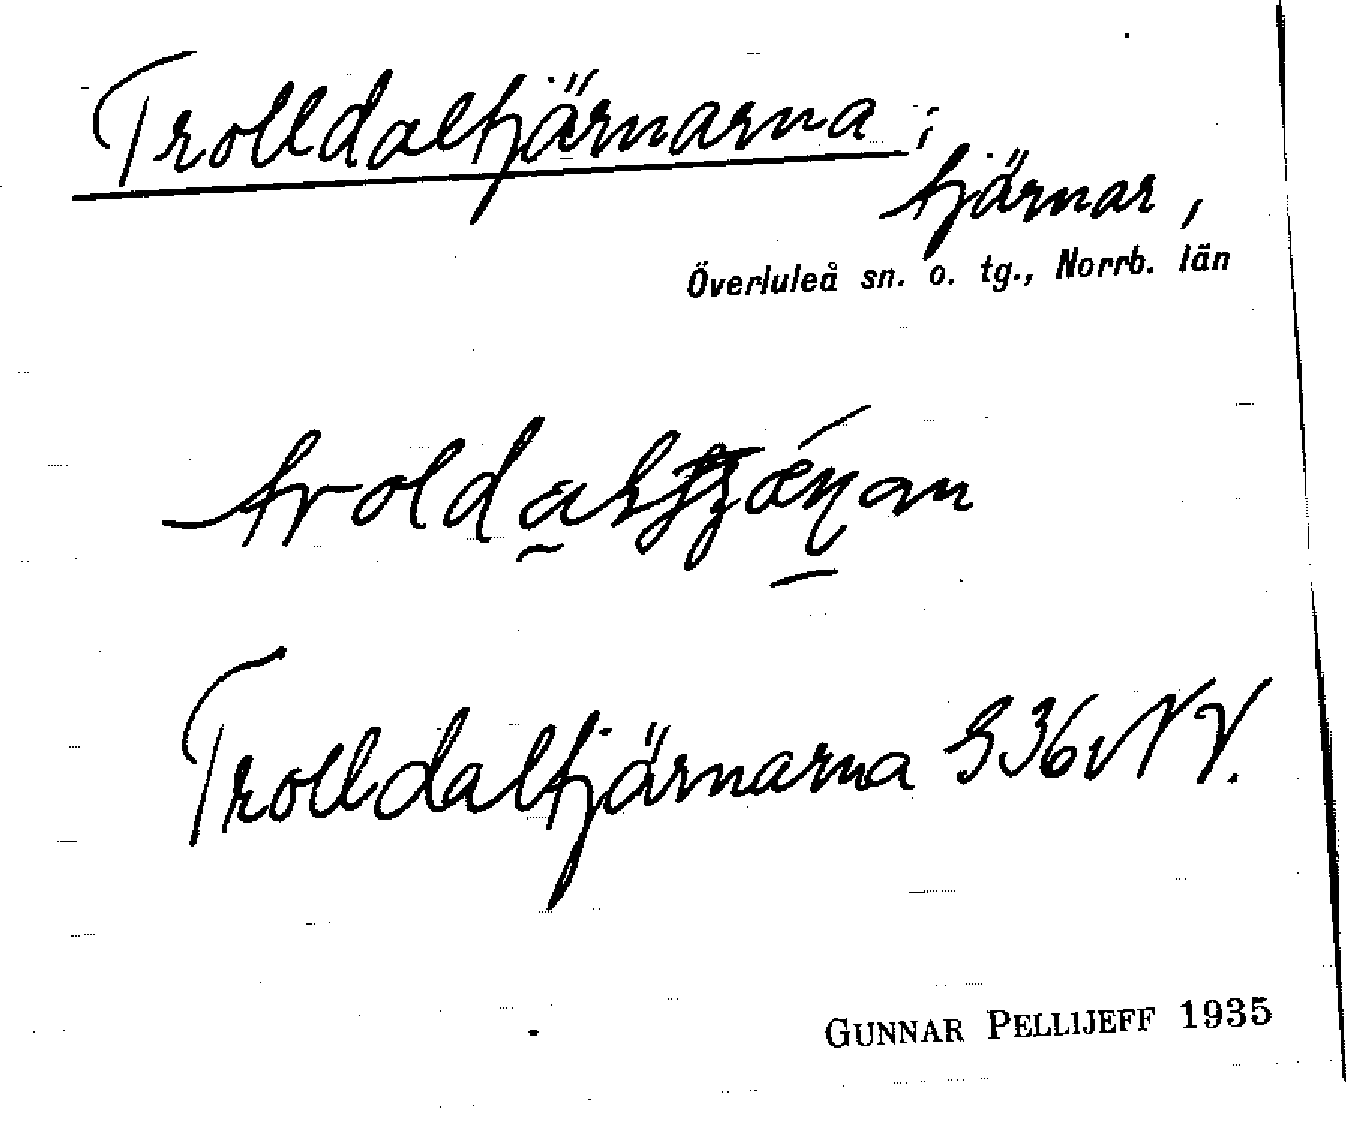 Trolldaltjärnarna;
tjärnar,
Överluleå sn. o. tg., Norrb. län
Trolldaltjärnarna S36v NV.
GUNNAR PELLIJEFF 1935